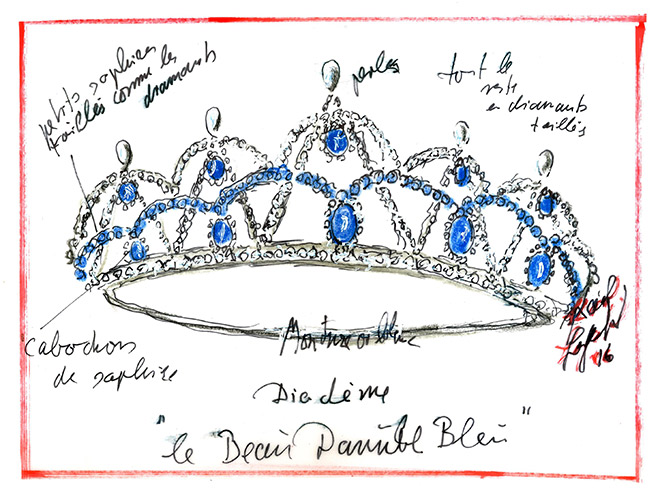 petits saphires
taillés comme les
diamants
perles
tout le
reste
en diamants
taillés
Cabochons
de saphire
Monture or blanc
Diadème
"le Beau Danube Bleu"
Karl
Lagerfeld
16